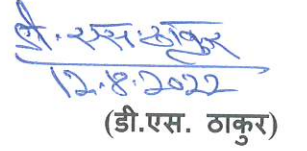 डी.एस.ठाकुर
12.8.2022
(डी.एस. ठाकुर)